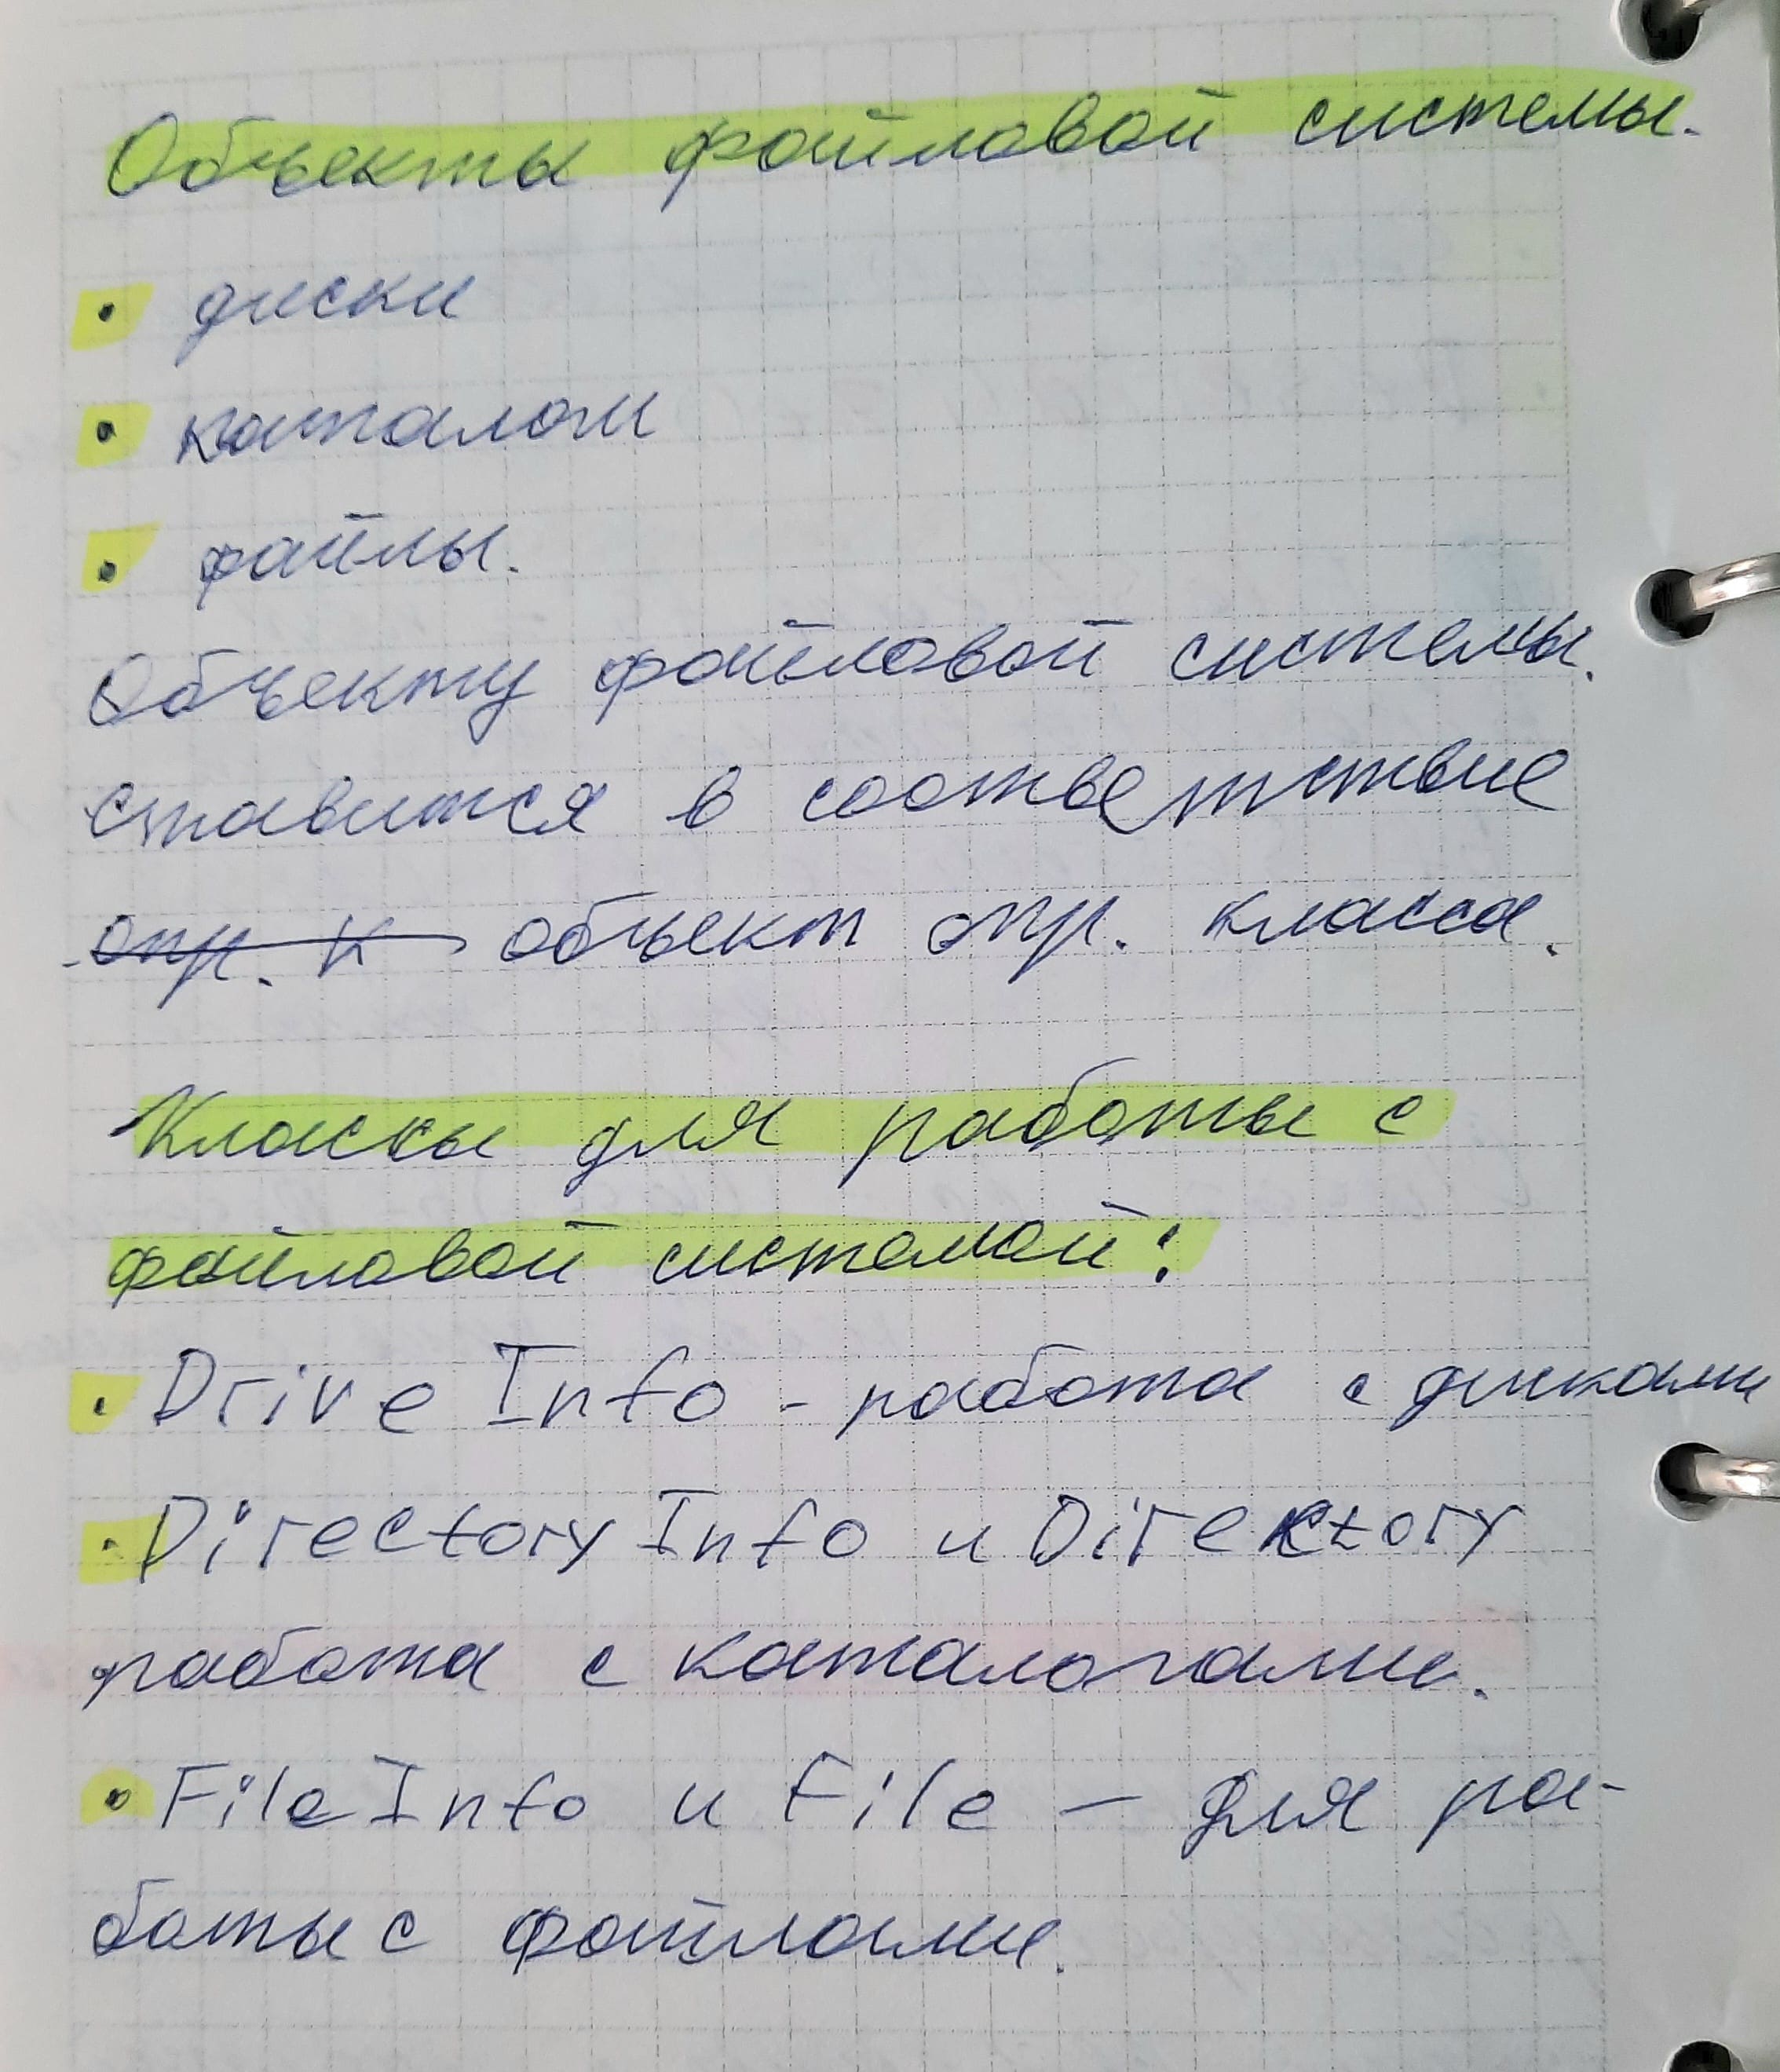 Объекты файловой системы.
• диски
• каталоги
• файлы.
Объекту файловой системы.
ставится в соответствие
опр. к объект опр. класса.
Классы для работы с
файловой системой:
• Drive Info - работа с дисками
• Directory Info и Directory
работа с каталогами.
• File Info и File — для ра-
боты с файлами.